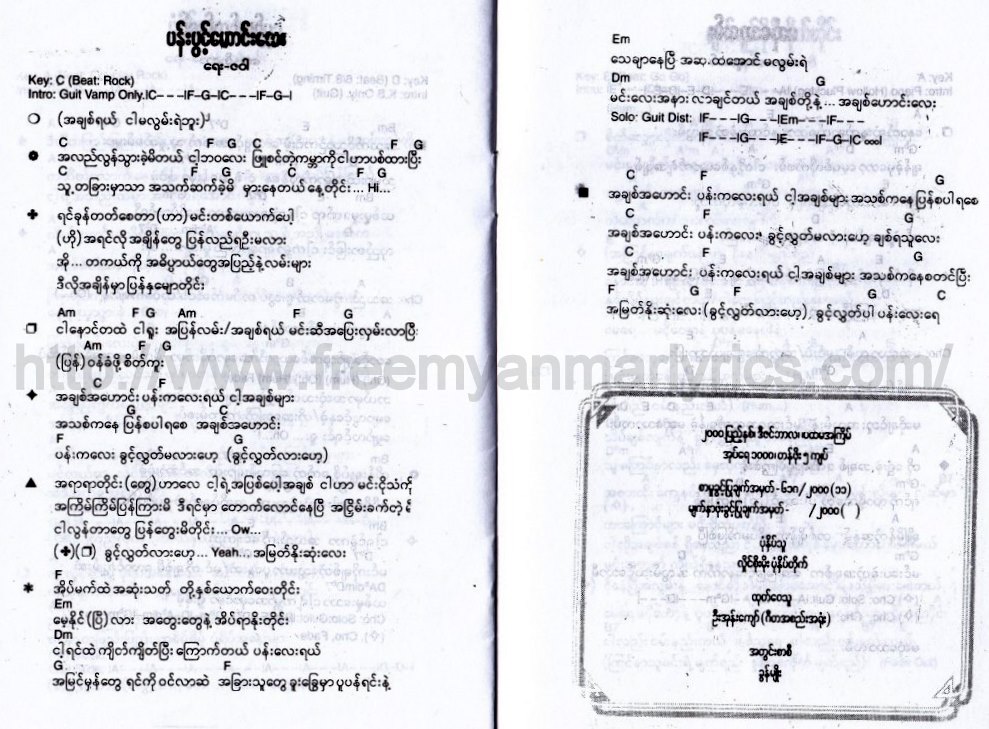 ပန်းပွင့်ဟောင်းလေး
ရေး-ဇဝါ
Key: C (Beat: Rock)
Intro: Guit Vamp Only.IC– – –IF–G–IC– – –IF–G–I
(အချစ်ရယ် ငါမလွမ်းရဲဘူး)
C F G F G
အလည်လွန်သွားခဲ့မိတယ် ငါ့ဘဝလေး ဖြူစင်တဲ့ကမ္ဘာကိုငါဟာပစ်ထားပြီး
C F G C F G
သူ့တခြားမှာသာ အသက်ဆက်ခဲ့မိ မှားနေတယ်နေ့တိုင်း... Hi...
ရင်ခုန်တတ်စေတာ (ဟာ) မင်းတစ်ယောက်ပေါ့
(ဟို) အရင်လို အချိန်တွေ ပြန်လည်ရဦးမလား
အို... တကယ်ကို အဓိပ္ပာယ်တွေအပြည့်နဲ့လမ်းများ
ဒီလိုအချိန်မှာပြန်နှမျောတိုင်း
Am F G Am F G
ငါနောင်တထဲ ငါရူး အပြန်လမ်း/အချစ်ရယ် မင်းဆီအပြေးလှမ်းလာပြီ
Am F G
(ပြန်) ဝန်ခံဖို့စိတ်ကူး
C F
အချစ်အဟောင်း ပန်းကလေးရယ် ငါ့အချစ်များ
G C
အသစ်ကနေ ပြန်စပါရစေ အချစ်အဟောင်း
F G
ပန်းကလေး ခွင့်လွှတ်မလားဟေ့ (ခွင့်လွှတ်လားဟေ့)
အရာရာတိုင်း (တွေ) ဟာလေ ငါ့ရဲ့အပြစ်ပေါ့အချစ် ငါဟာ မင်းငိုသံကို
အကြိမ်ကြိမ်ပြန်ကြားမိ ဒီရင်မှာ တောက်လောင်နေပြီ အငြိမ်းခက်တဲ့
ငါလွန်တာတွေ ပြန်တွေးမိတိုင်း... Ow...
(✚)(❒) ခွင့်လွှတ်လားဟေ့... Yeah... အမြတ်နိုးဆုံးလေး
F
အိပ်မက်ထဲ အဆုံးသတ် တို့နှစ်ယောက်ဝေးတိုင်း
Em
မေ့နိုင် (ပြီ) လား အတွေးတွေနဲ့ အိပ်ရာနိုးတိုင်း
Dm
ငါ့ရင်ထဲ ကျိတ်ကျိတ်ပြီး ကြောက်တယ် ပန်းလေးရယ်
G F
အမြင်မှန်တွေ ရင်ကိုဝင်လာဆဲ အခြားသူတွေ ခူးခြွေမှာပူပန်ရင်းနဲ့
Em
သေချာနေပြီ အဆုံးထိအောင် မလွမ်းရဲ
Dm G
မင်းလေးအနား လာချင်တယ် အချစ်တို့နဲ့... အချစ်ဟောင်းလေး
Solo: Guit Dist: IF– – –IG– – –IEm– – –IF– – –
IF– – –IG– – –IE– – –IF–G–IC
C F G
အချစ်အဟောင်း ပန်းကလေးရယ် ငါ့အချစ်များ အသစ်ကနေပြန်စပါရစေ
C F G
အချစ်အဟောင်း ပန်းကလေး ခွင့်လွှတ်မလားဟေ့ ချစ်ရသူလေး
C F G
အချစ်အဟောင်း ပန်းကလေးရယ် ငါ့အချစ်များ အသစ်ကနေစတင်ပြီး
F G F G C
အမြတ်နိုးဆုံးလေး (ခွင့်လွှတ်လားဟေ့) ခွင့်လွှတ်ပါ ပန်းလေးရေ
၂၀၀၀ ပြည့်နှစ်၊ ဒီဇင်ဘာလ၊ ပထမအကြိမ်
အုပ်ရေ ၁၀၀၀၊ တန်ဖိုး ၅ ကျပ်
စာမူခွင့်ပြုချက်အမှတ် - ၆၃၈/၂၀၀၀ (၁၁)
မျက်နှာဖုံးခွင့်ပြုချက်အမှတ် - /၂၀၀၀ ( )
ပုံနှိပ်သူ
လှိုင်စိုးမိုး ပုံနှိပ်တိုက်
ထုတ်ဝေသူ
ဦးအုန်းကျော် (ဂီတာအစည်းအဖုံး)
အတွင်းစာစီ
ခွန်မျိုး
http://www.freemyanmarlyrics.com/